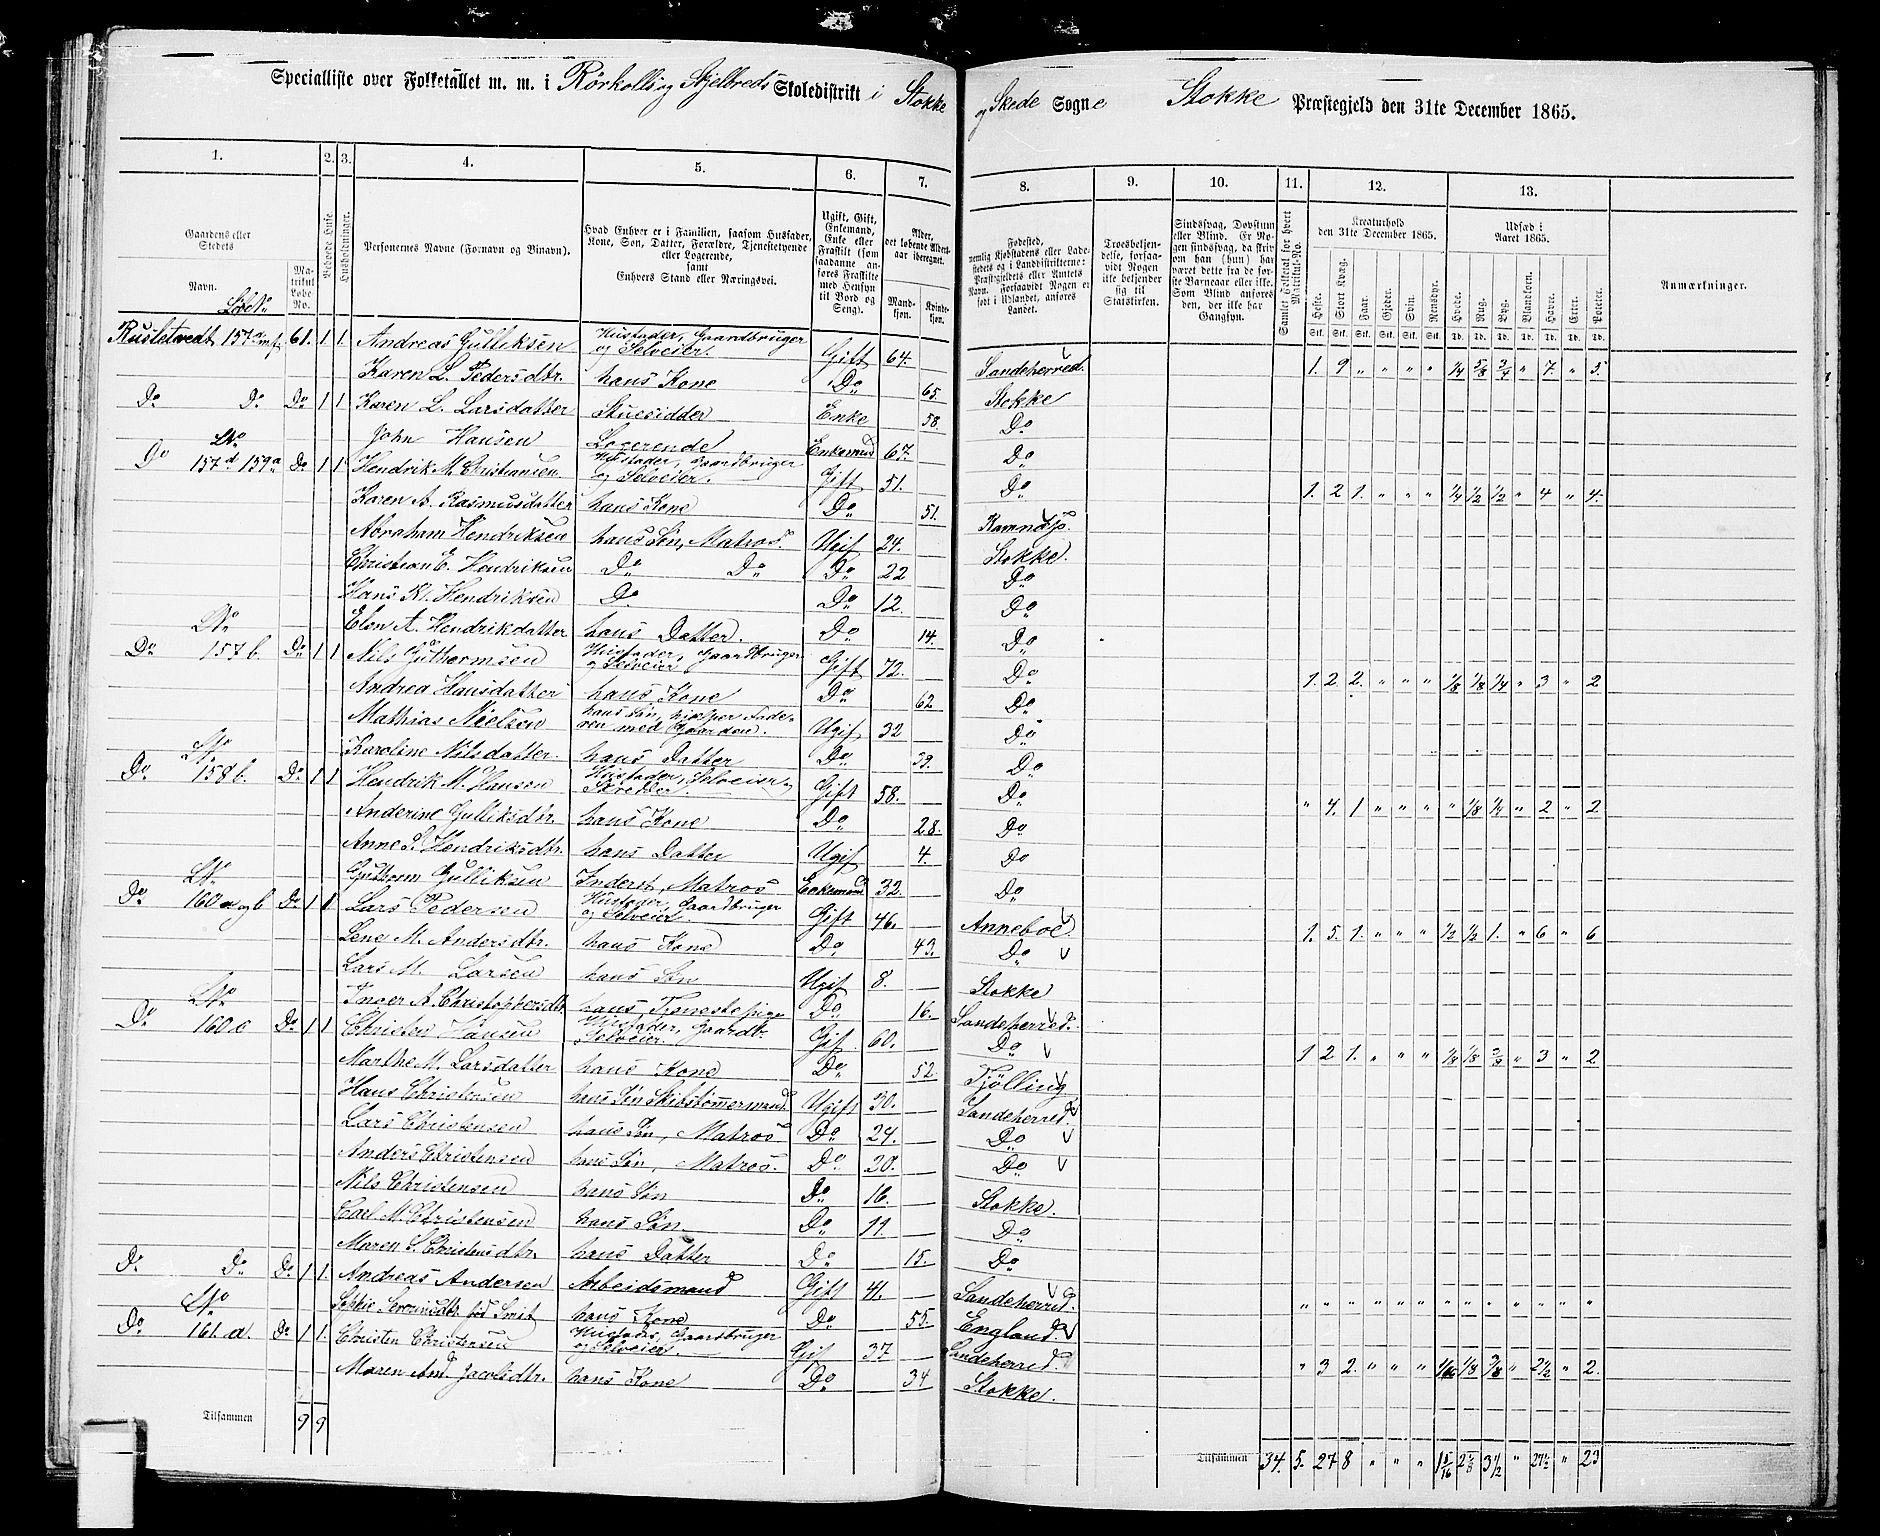 Specialliste over Folketallet m. m. i Rörkolls og Skjelbreds Skoledistrikt i Stokke og Skede Sogne Stokke Præstegjeld den 31te December 1865.
1. 2. 3. 4. 5. 6. 7. 8. 9. 10. 11. 12. 13.
Gaardens eller Stedets
Navn.
Matrikul Løbe-No.
Beboede Huse.
Husholdninger.
Personernes Navne (Fornavn og Binavn).
Hvad Enhver er i Familien, saasom Husfader, Kone, Søn, Datter, Forældre, Tjenestetyende eller Logerende, samt Enhvers Stand eller Næringsvei.
Ugift, Gift, Enkemand, Enke eller Fraskilt (som saadanne anføres Fraskilte med Hensyn til Bord og Seng).
Alder, det løbende Aldersaar iberegnet.
Mandkjøn. Kvindekjøn.
Fødested, nemlig Kjøbstadens eller Ladestedets og i Landdistrikterne: Præstegjeldets eller Amtets Navn. Forsaavidt Nogen er født i Udlandet, anføres Landet.
Troesbekjendelse, forsaavidt Nogen ikke bekjender sig til Statskirken.
Sindssvag, Døvstum eller Blind. Er Nogen sindssvag, da skrives om han (hun) har været dette fra de første Barneaar eller ikke. Som Blind anføres den, der ikke har Gangsyn.
Samlet Folketal for hvert Matrikul-No.
Kreaturhold den 31te December 1865.
Heste. Stort Kvæg. Faar. Gjeder. Svin. Rensdyr.
Udsæd i Aaret 1865.
Hvede. Rug. Byg. Blandkorn. Havre. Erter. Poteter.
Anmærkninger.
Rusletvedt 157 61. 1 1 Andreas Gulliksen Husfader, Gaardbruger og Selveier. Gift 64. Sandeherred. 1. 9 " " " " 1/4 5/8 3/4 " 7 " 5.
Karen L. Pedersdtr. hans Kone Do 65. Stokke
Do Do Do 1 1 Karen L. Larsdatter Stuesidder Enke 58. Do
John Hansen Logerende Enkemand 67. Do
Do LNo 157d 159a Do 1 1 Hendrik M. Christiansen Husfader, Gaardbruger og Selveier. Gift 51. Do 1. 2 1. " " " 1/4 1/2 1/2 " 4 " 4.
Karen A. Rasmusdatter hans Kone Do 51.
Abraham Hendriksen hans Søn, Matros. Ugif 24. Stokke.
Christian E. Hendriksen Do Do Do 22 Do
Hans Kr. Hendriksen Do Do 12. Do
Elen A. Hendrikdatter hans Datter. Do 14. Do
Do LNo 157 b. Do 1 1 Nils Guthormsen Husfader, Gaardbruger og Selveier Gift 72. Do 1. 2. 2. " " " 1/8 1/8 1/4 " 3 " 2
Andrea Hansdatter hans Kone Do 62 Do
Mathias Nielsen hans Søn, hjælper Faderen med Gaarden. Ugif 32 Do
Karoline Nilsdatter. hans Datter Do 39. Do
Do LNo 158 b. Do 1 1 Hendrik M. Hansen Husfader, Selveier og Skredder. Gift 58. Do " 4. 1 " " " " 1/8 1/4 " 2 " 2
Anderine Gulliksdtr. hans Kone Do 28. Do
Anne S. Hendriksdtr. hans Datter Ugif 4. Do
Guthorm Gulliksen Inderst, Matros Enkemand 32. Do
Do LNo 160 a og b Do 1 1 Lars Pedersen Husfader, Gaardbruger og Selveier. Gift 46. Anneboe 1. 5. 1. " " " 1/2 1/2 1. " 6 " 6
Lene M. Andersdtr. hans Kone Do 43. Do
Lars M. Larsen hans Søn Ugif 8. Stokke
Inger A. Christophersdtr. hans Tjenestepige Do 16. Sandeherred.
Do LNo 160 c Do 1 1 Christen Hansen Husfader, Gaardbr. Selveier. Gif 60. Do 1 2 1. " " " 1/8 1/8 3/8 " 3 " 2
Marthe M. Larsdatter hans Kone Do 52. Tjölling
Hans Christensen hans Søn Skibstømmermand Ugift 30. Sandeherred.
Lars Christensen hans Søn, Matros Do 24. Do
Anders Christensen hans Søn, Matros. Do 20. Do
Nils Christensen hans Søn Do 16. Stokke.
Carl M. Christensen hans Søn. Do 11. Do
Maren S. Christensdtr. hans Datter Do 15. Do
Do Do Do 1 1. Andreas Andersen Arbeidsmand Gift 41. Sandeherred. " " " " " " " " " " " " "
Sophie Severinsdtr. fød Smit hans Kone Do 55. England.
Do LNo 161. a. Do 1 1. Christen Christensen Husfader, Gaardbruger og Selveier. Gif 37. Sandeherred. " 3 2. " " " 1/16 1/8 3/8 " 2 1/2 " 2.
Maren And. Jacobsdtr. hans Kone Do 34 Stokke.
Tilsammen 9 9
Tilsammen 34. 5. 27 8 " " " 1 5/16 3 1/2 " 27 1/2 " 23